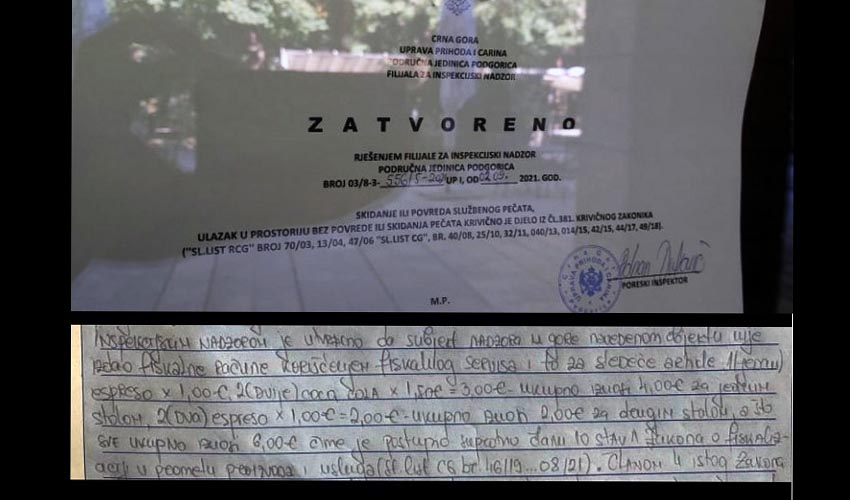 CRNA GORA
UPRAVA PRIHODA I CARINA
PODRUČNA JEDINICA PODGORICA
FILIJALA ZA INSPEKCIJSKI NADZOR
ZATVORENO
RJEŠENJEM FILIJALE ZA INSPEKCIJSKI NADZOR
PODRUČNA JEDINICA PODGORICA
BROJ 03/8-3- UP I, OD 02.09. 2021. GOD.
SKIDANJE ILI POVREDA SLUŽBENOG PEČATA,
ULAZAK U PROSTORIJU BEZ POVREDE ILI SKIDANJA PEČATA KRIVIČNO JE DJELO IZ ČL.381. KRIVIČNOG ZAKONIKA
("SL.LIST RCG" BROJ 70/03, 13/04, 47/06 "SL.LIST CG", BR. 40/08, 25/10, 32/11, 040/13, 014/15, 42/15, 44/17, 49/18).
CRNA GORA
UPRAVA PRIHODA I CARINA
PORESKI INSPEKTOR
M.P.
INSPEKCIJSKIM NADZOROM je utvrđeno da subjekt NADZORA u gore navedenom objektu nije
izdao fiskalne račune korišćenjem fiskalnog servisa i to za sledeće artikle 1(jedan)
espreso x 1,00€, 2(DVIJE) coca cola x 1,50€ = 3,00€ - ukupno iznosi 4,00€ za jednim
stolom, 2(DVA) espreso x 1,00€ = 2,00€ - ukupno iznosi 2,00€ za drugim stolom, a što
sve ukupno iznosi 6,00€ čime je postupio suprotno članu 10 stav 1 Zakona o fiskaliza-
ciji u prometu proizvoda i usluga (Sl. list CG br. 46/19...08/21). Članom 4 istog Zakona